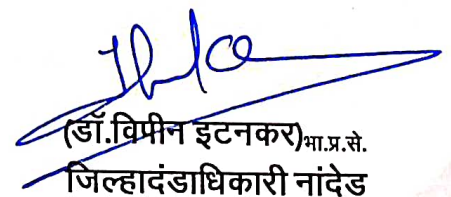 (डॉ.विपीन इटनकर)भा.प्र.से.
जिल्हादंडाधिकारी नांदेड